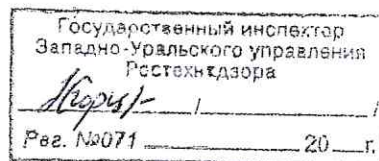 Государственный инспектор
Западно-Уральского управления
Ростехнадзора
/ /
Рег. №071 20 г.